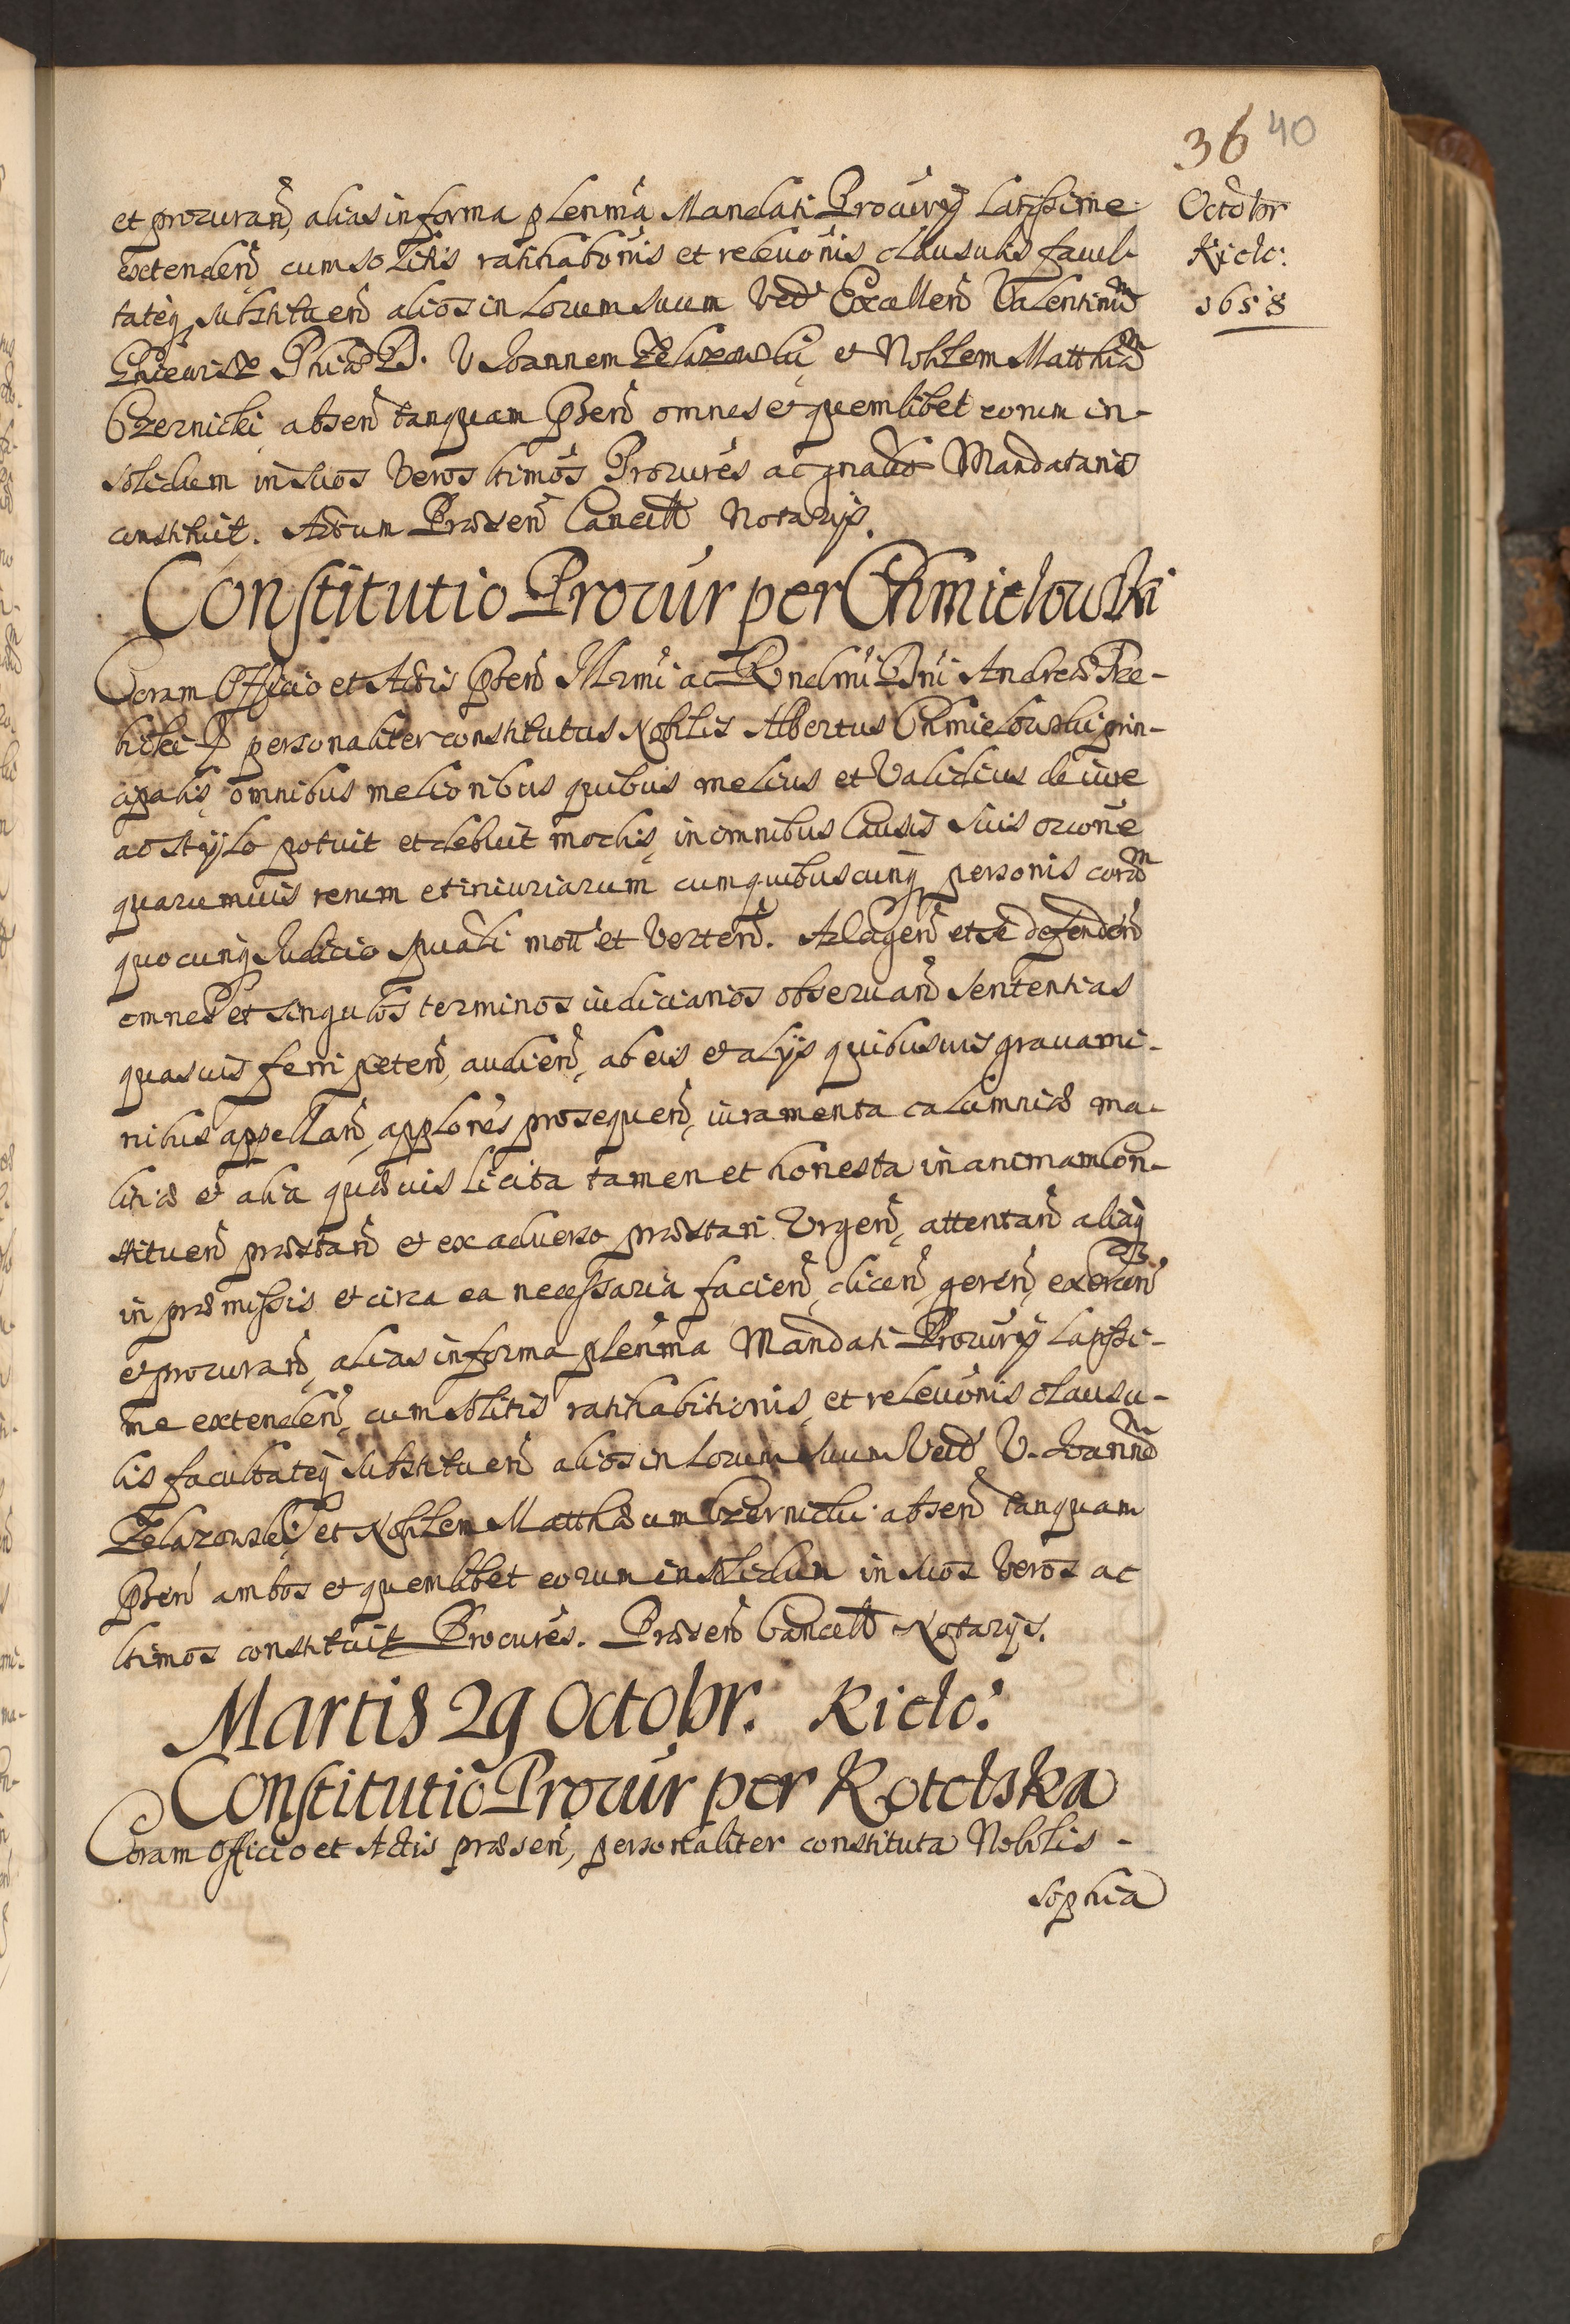 36 40
Octobr
Kielc:
1658
et procurand, alias in forma plenma Mandati Procurij latissime
extendend cum solitis ratihabonis et relevonis clausulis facul-
tateq substituend alios in locum suum Vend Excellend Valentinum
Phiae D. V Joannem Zelazowski et Nobilem Matthiam
Czernicki absend tanquam pntend omnes et quemlibet eorum in-
solidum in suos veros ltimos Procures ac gnales Mandatarios
constituit. Actum Præsend Cancell Notarijs.
Constitutio Procur per Chmielowski
Coram Officio et Actis pntend Illrmi ac Rndmi Dni Andreæ Trze-
bicki personaliter constitutus Nobilis Albertus Chmielowski prin-
cipalis omnibus melioribus quibus melius et validius de iure
ac stylo potuit et debuit modis, in omnibus Causis suis ocione
quarumuis rerum et iniuriarum cum quibuscunq personis coram
quocunq Iudicio spuali mott et vertend. Ad agend et se defendend
omnes et singulos terminos iudiciarios obseruand sententias
quasuis ferri petend, audiend, ab eis et alijs quibusuis grauami-
nibus appelland, applones prosequend, iuramenta calumniæ ma-
litiæ et alia quæuis licita tamen et honesta in animam Con-
stituend præstand et ex aduerso præstari Urgend, attentand aliaq
in præmissis et circa ea necessaria faciend, dicend gerend, exercend
et procurand, alias in forma plenma Mandati Procurij latissi-
me extendend, cum solitis ratihabitionis, et relevonis clausu-
lis facultateq substituend alios in locum suum Vend V. Joannem
Zelazowski et Nobilem Matthæum Czernicki absend tanquam
pntend ambos et quemlibet eorum in solidum in suos veros ac
ltimos constituit Procures. Præsend Cancell Notarijs.
Martis 29 Octobr. Kielc:
Constitutio Procur per Kotelska
Coram Officio et Actis præsend, personaliter constituta Nobilis -
Sophia